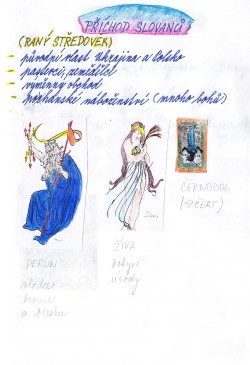 PŘÍCHOD SLOVANŮ
(RANÝ STŘEDOVĚK)
původní vlast Ukrajina a Polsko
pastevci, zemědělci
výměnný obchod
pohanské náboženství (mnoho bohů)
Živa
ČERNOBOG
(→ČERT)
PERUN
vládce
hromu
a blesku
ŽIVA
bohyně
úrody